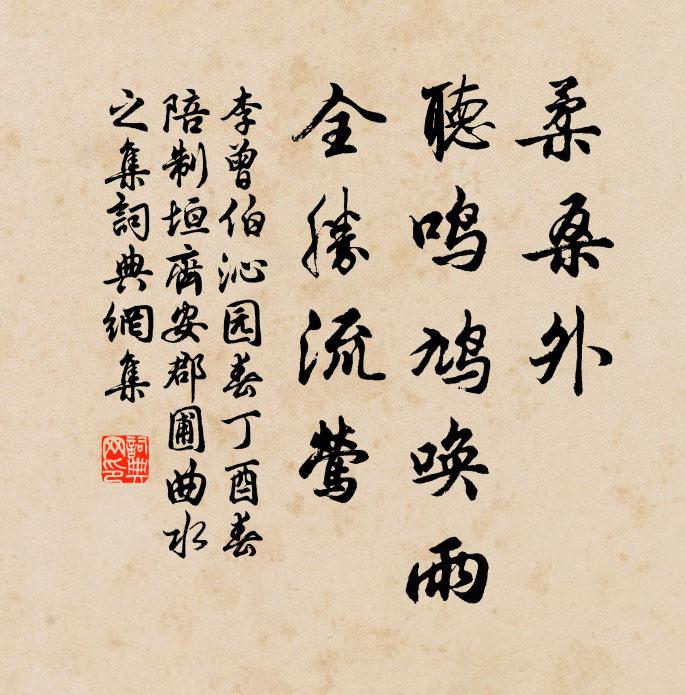 柔桑外
聽鸣鸠唤雨
全勝流莺
李曾伯沁园春丁酉春
陪制垣齊安郡圃曲水
之集詞典網集
詞典网印